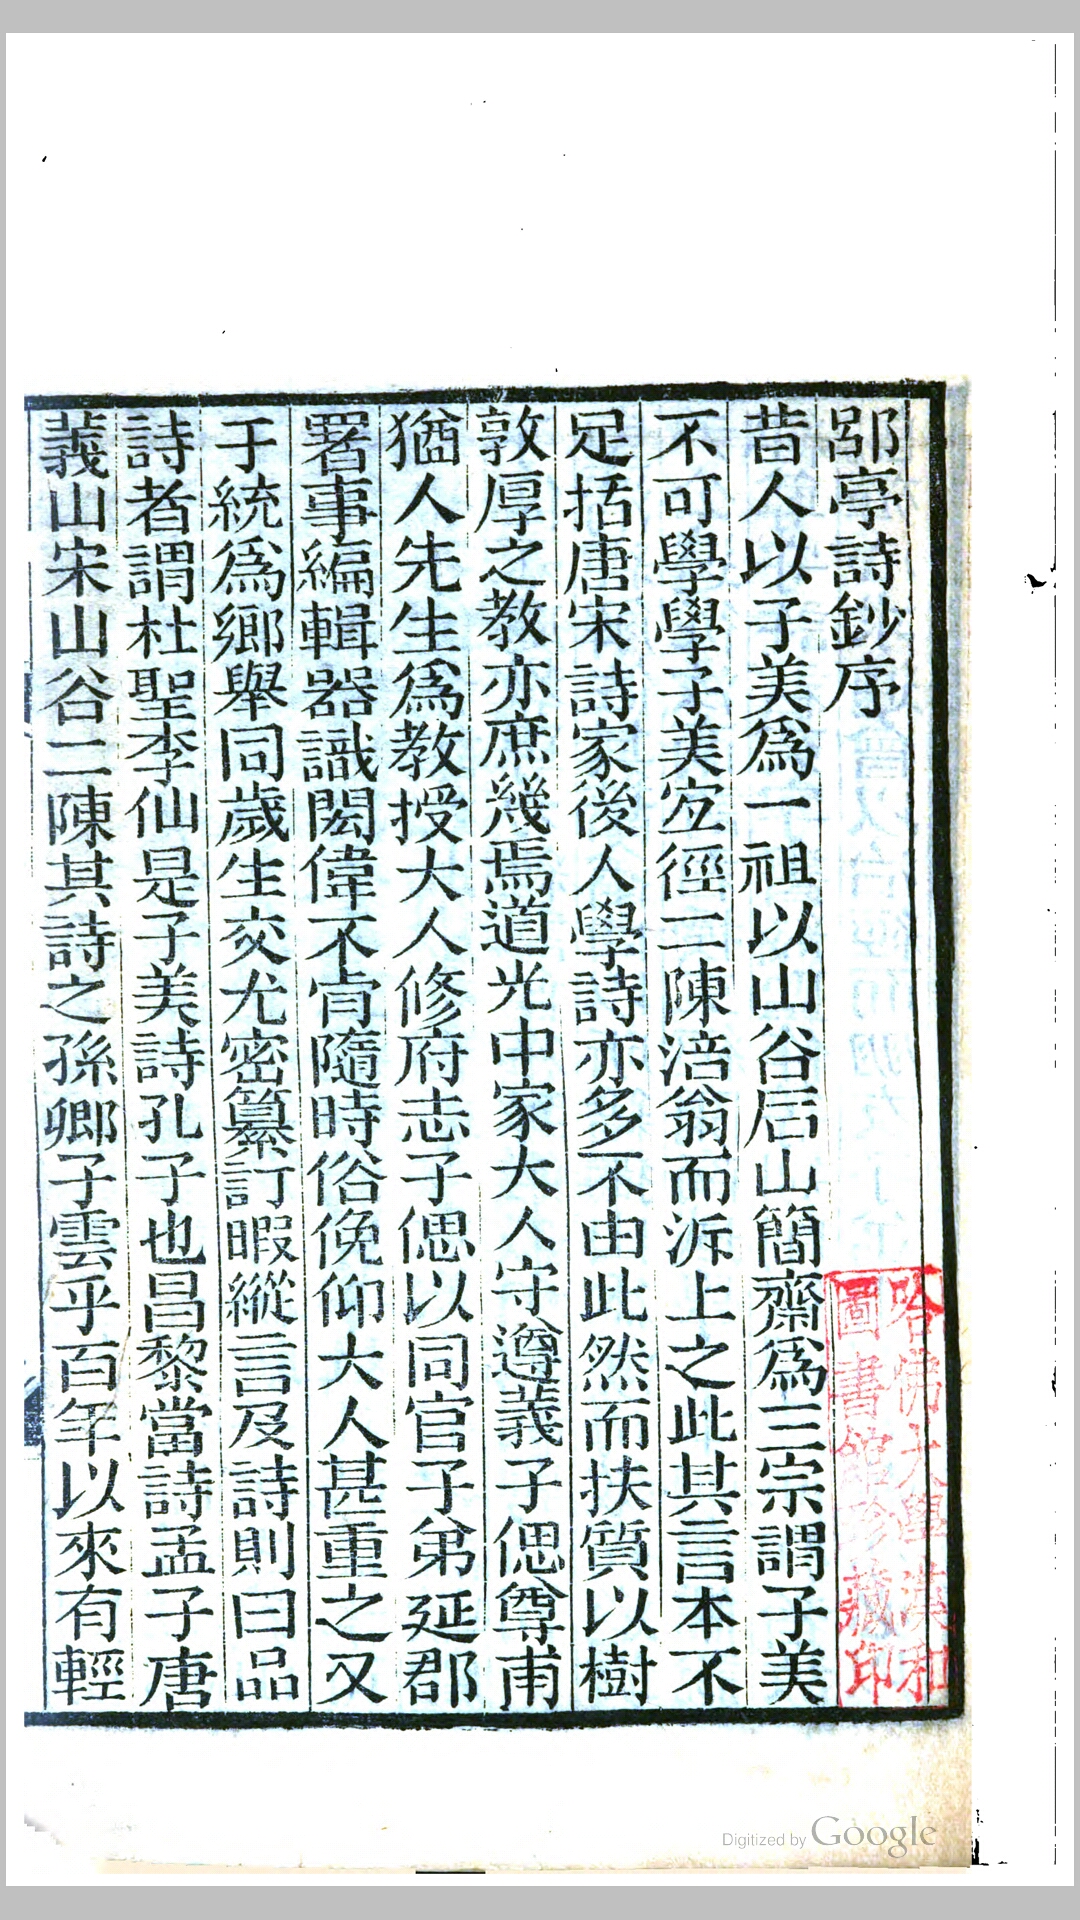 郘亭詩鈔序
昔人以子美爲一祖以山谷后山簡齋爲三宗謂子美
不可學學子美宐徑二陳涪翁而泝上之此其言本不
足括唐宋詩家後人學詩亦多不由此然而扶質以樹
敦厚之教亦庶幾焉道光中家大人守遵義子偲尊甫
猶人先生爲教授大人修府志子偲以同官子弟延郡
署事編輯器識閎偉不肯隨時俗俛仰大人甚重之又
于統爲鄉舉同歲生交尤密纂訂暇縱言及詩則曰品
詩者謂杜聖李仙是子美詩孔子也昌黎當詩孟子唐
義山宋山谷二陳其詩之孫卿子雲乎百年以來有輕
哈佛大學漢和
圖書館珍藏印
Digitized by Google